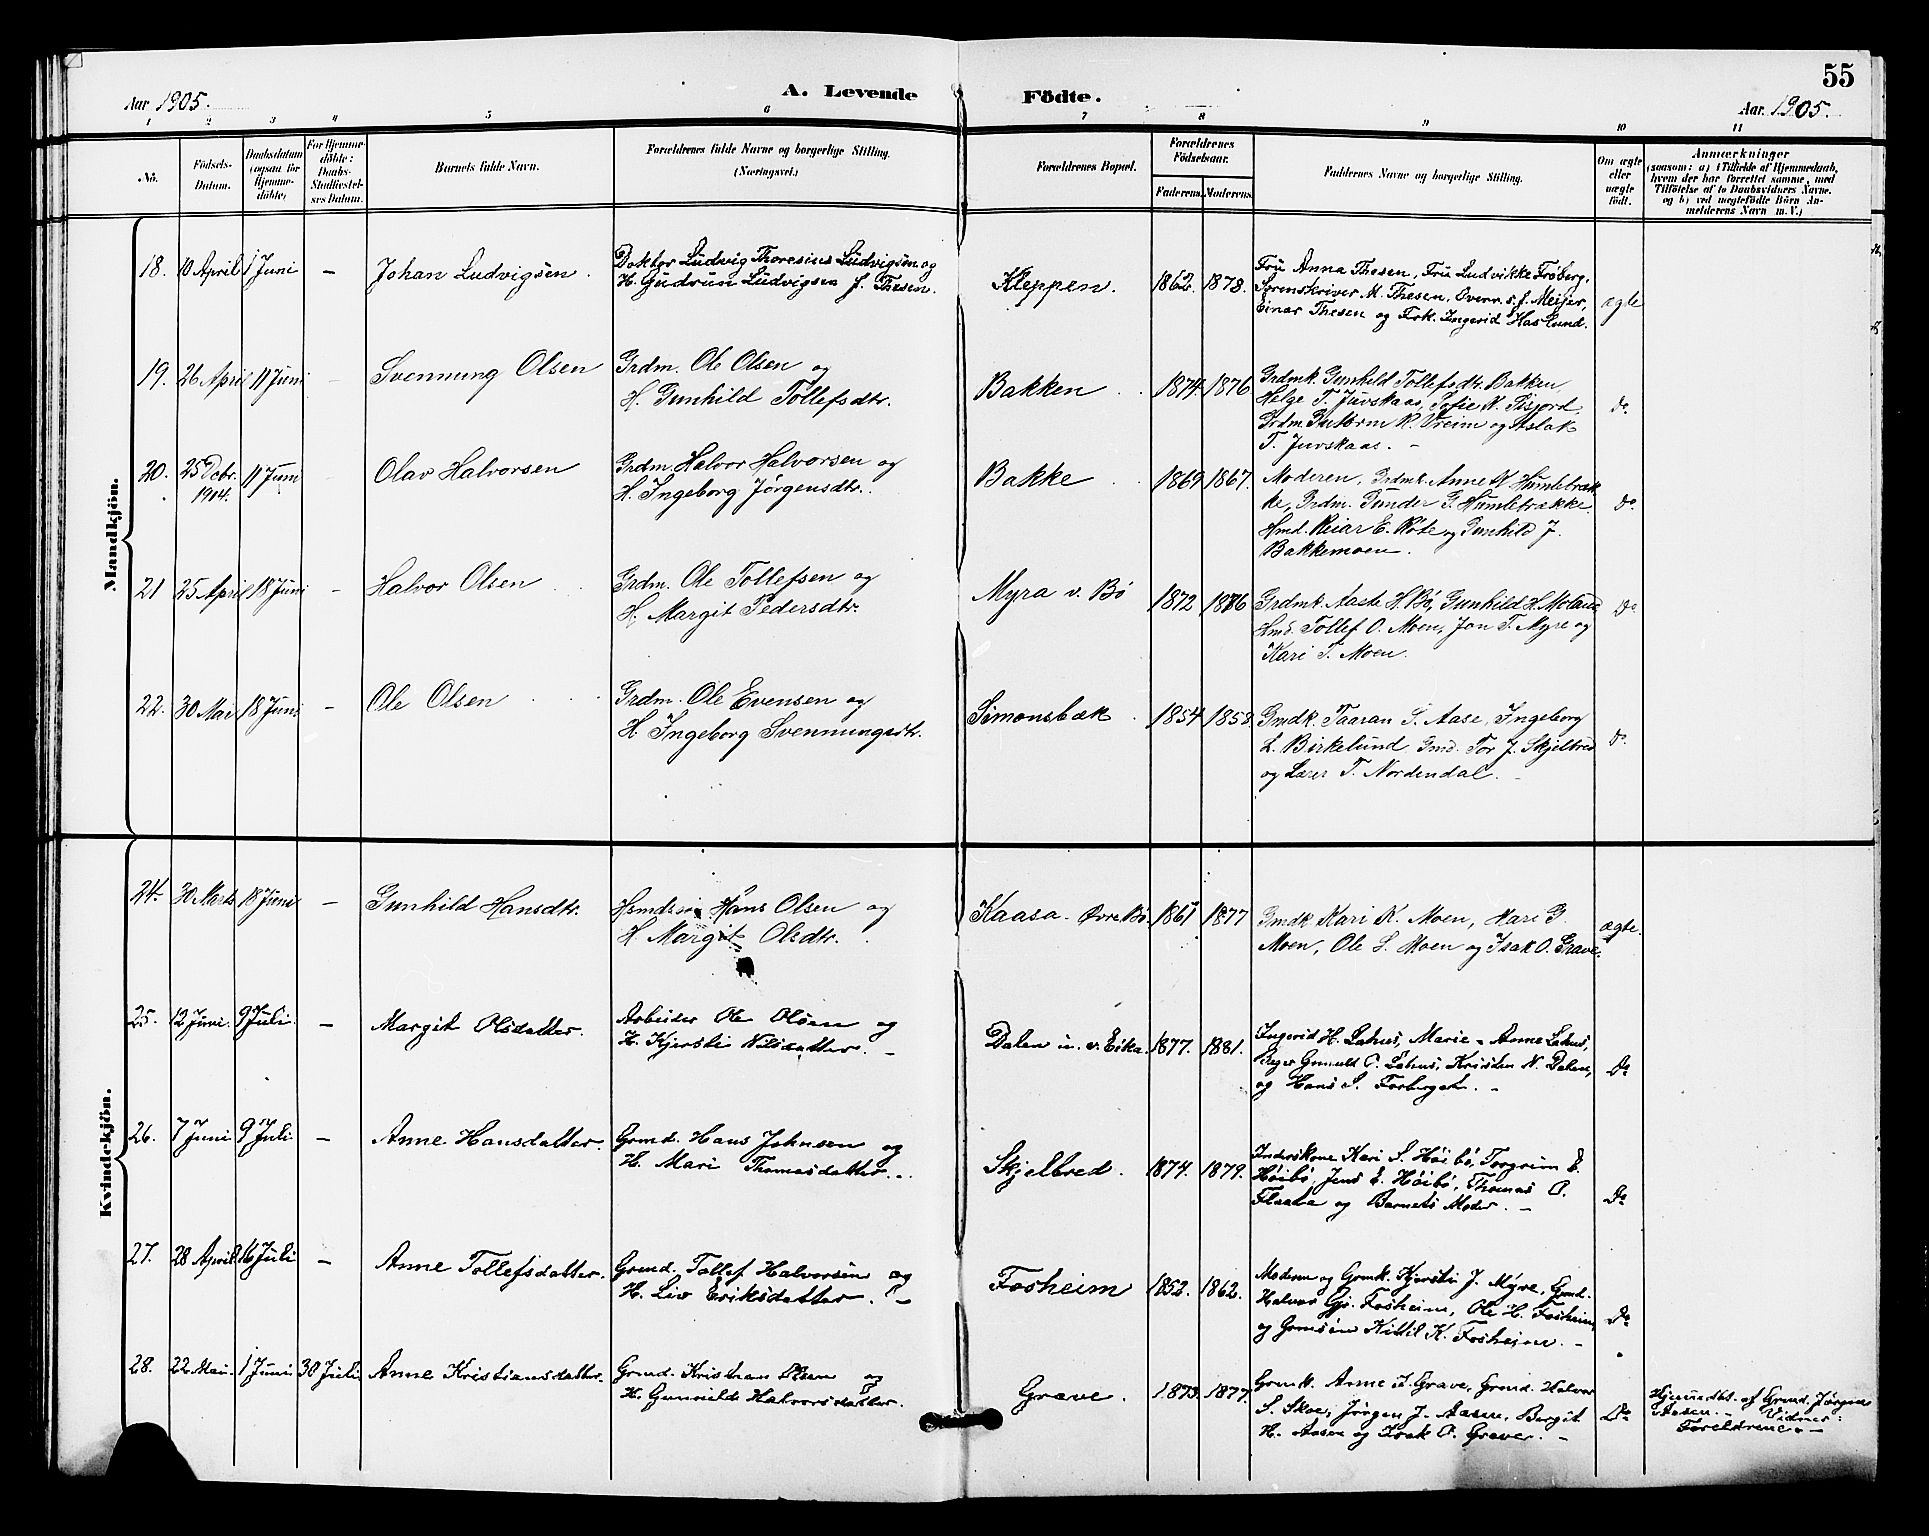 55
Aar 1905.
A. Levende Födte.
Aar 1905.
1 2 3 4 5 6 7 8 9 10 11
No.
Födsels-
Datum.
Daabsdatum
(ogsaa for
Hjemme-
döbte)
For Hjemme-
döbte:
Daabs-
Stadfæstel-
ses Datum.
Barnets fulde Navn.
Forældrenes fulde Navne og borgerlige Stilling.
(Næringsvei.)
Forældrenes Bopæl.
Forældrenes
Födselsaar.
Faderens. Moderens.
Faddernes Navne og borgerlige Stilling.
Om ægte
eller
uægte
födt.
Anmærkninger
(saasom: a) i Tilfælde af Hjemmedaab,
hvem der har forrettet samme, med
Tilföielse af to Daabsvidners Navne,
og b) ved uægtefödte Börn An-
melderens Navn m. V.)
Mandkjön.
18. 10 April 1 Juni – Johan Ludvigsen.
Doktor Ludvig Thoresius Ludvigsen og
H. Gudrun Ludvigsen f. Thesen.
Kleppen. 1862. 1878.
Fru Anna Thesen, Fru Ludvikke Froberg,
Sorenskriver M. Thesen, Overr.s.f. Meijer,
Einar Thesen og Frk. Ingerid Haslund.
ægte
19. 26 April 11 Juni – Svennung Olsen
Grdm. Ole Olsen og
H. Gunhild Tollefsdtr.
Bakken 1874. 1876
Grdmk. Gunhild Tollefsdtr. Bakken,
Helge T. Juvskaas, Sofie N. Tisjord,
Grdm. Guttorm K. Vreim og Aslak
T. Juvskaas. –
Do
20. 25 Dcbr. 1904. 11 Juni Olav Halvorsen
Grdm. Halvor Halvorsen og
H. Ingeborg Jørgensdtr.
Bakke 1869 1867.
Moderen, Grdmk. Anne N. Humlebræk
ke, Grdm. Gunder G. Humlebrække.
Hmd. Reiar E. Kåte og Gunhild J.
Bakkemoen.
Do
21 25 April 18 Juni – Halvor Olsen
Grdm. Ole Tollefsen og
H. Margit Pedersdtr.
Myra v. Bø 1872 1876
Grdmk. Aaste H. Bø, Gunhild H. Moland
Hmd. Tollef O. Moen, Jon T. Myre og
Kari T. Moen.
Do
22. 30 Mai 18 Juni – Ole Olsen
Grdm. Ole Evensen og
H. Ingeborg Svennungsdtr.
Simonsbæk 1854 1858
Gmdk. Taaran S. Aase, Ingeborg
L. Birkelund, Gmd. Tor J. Skjelbred
og Lærer T. Nordendal. –
Do
Kvindekjön.
24. 30 Marts 18 Juni – Gunhild Hansdtr.
Hans Olsen og
H. Margit Olsdtr.
Kaasa. Øvrebø. 1867 1877
Gmdk Kari K. Moen, Mari G.
Moen, Ole L. Moen og Isak O. Grave.
ægte.
25. 12 Juni. 9 Juli. – Margit Olsdatter.
Arbeider Ole Olsen og
H. Kjersti Nilsdatter. –
Dalen u. v. Eika. 1877. 1881.
Ingerid H. Lahus, Marie – Anne Lahus,
Gunnuld O. Lahus, Kristen N. Dalen,
og Hans S. Forberget. –
Do
26. 7 Juni 9 Juli – Anne Hansdatter.
Grmd. Hans Johnsen og
H. Mari Thomasdatter. –
Skjelbred. 1874. 1879.
Inderskone Kari S. Høibø, Torgrim E.
Høibø, Jens E. Høibø, Thomas O.
Flaata og Barnets Moder. –
Do
27. 28 April 16 Juli – Anne Tollefsdatter.
Grmd. Tollef Halvorsen og
H. Liv Eriksdatter. –
Fosheim 1852. 1862.
Moderen og Grmk. Kjersti J. Myre, Grmd.
Halvor Gj. Fosheim, Ole H. Fosheim,
og Grmsøn Kittil K. Fosheim. –
Do
28. 22 Mai. 1 Juni 30 Juli. Anne Kristiansdatter.
Grmd. Kristian Olsen og
H. Gunnild Halvorsdatter.
Grave. 1873. 1877.
Grmk. Anne I. Grave, Grmd. Halvor
S. Skoe, Jørgen J. Aasen, Bergit
H. Aasen og Isak O. Graver. –
Do
Hjemmedbt. af Grmd. Jørgen
Aasen. – Vidner:
Foreldrene. –